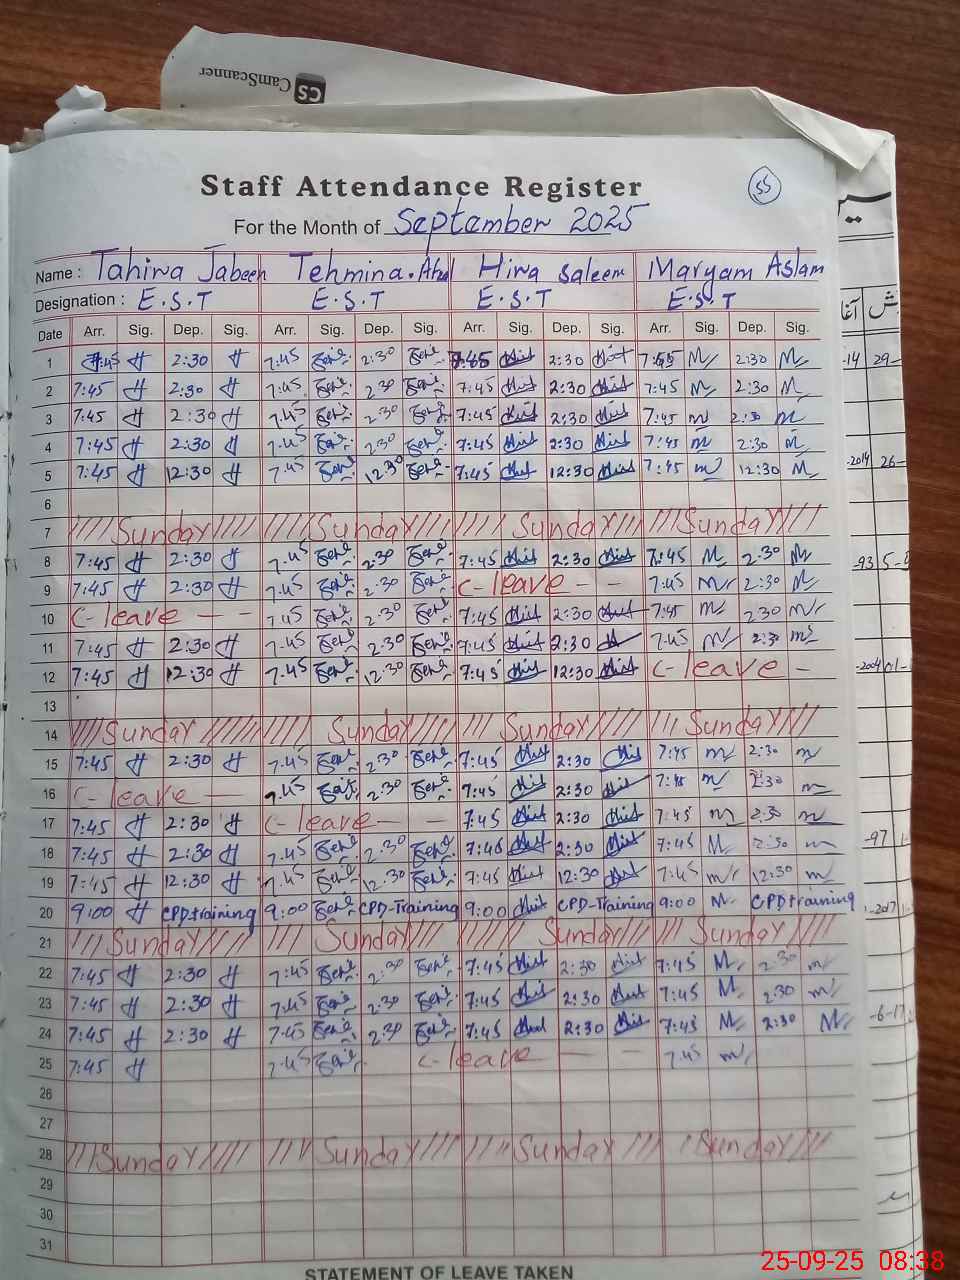 CS CamScanner
Staff Attendance Register
55
For the Month of September 2025
Name : Tahira Jabeen Tehmina. Hira Saleem Maryam Aslam
Designation : E.S.T E.S.T E.S.T E.S.T
Date Arr. Sig. Dep. Sig. Arr. Sig. Dep. Sig. Arr. Sig. Dep. Sig. Arr. Sig. Dep. Sig.
1 7:45 2:30 7:45 2:30 7:45 2:30 7:45 2:30
2 7:45 2:30 7:45 2:30 7:45 2:30 7:45 2:30
3 7:45 2:30 7:45 2:30 7:45 2:30 7:45 2:30
4 7:45 2:30 7:45 2:30 7:45 2:30 7:45 2:30
5 7:45 12:30 7:45 12:30 7:45 12:30 7:45 12:30
6
7 Sunday Sunday Sunday Sunday
8 7:45 2:30 7:45 2:30 7:45 2:30 7:45 2:30
9 7:45 2:30 7:45 2:30 C-leave 7:45 2:30
10 C-leave 7:45 2:30 7:45 2:30 7:45 2:30
11 7:45 2:30 7:45 2:30 7:45 2:30 7:45 2:30
12 7:45 12:30 7:45 12:30 7:45 12:30 C-leave
13
14 Sunday Sunday Sunday Sunday
15 7:45 2:30 7:45 2:30 7:45 2:30 7:45 2:30
16 C-leave 7:45 2:30 7:45 2:30 7:45 2:30
17 7:45 2:30 C-leave 7:45 2:30 7:45 2:30
18 7:45 2:30 7:45 2:30 7:45 2:30 7:45 2:30
19 7:45 12:30 7:45 12:30 7:45 12:30 7:45 12:30
20 9:00 CPD training 9:00 CPD-Training 9:00 CPD-Training 9:00 CPD training
21 Sunday Sunday Sunday Sunday
22 7:45 2:30 7:45 2:30 7:45 2:30 7:45 2:30
23 7:45 2:30 7:45 2:30 7:45 2:30 7:45 2:30
24 7:45 2:30 7:45 2:30 7:45 2:30 7:45 2:30
25 7:45 7:45 C-leave 7:45
26
27
28 Sunday Sunday Sunday Sunday
29
30
31
STATEMENT OF LEAVE TAKEN
25-09-25 08:38